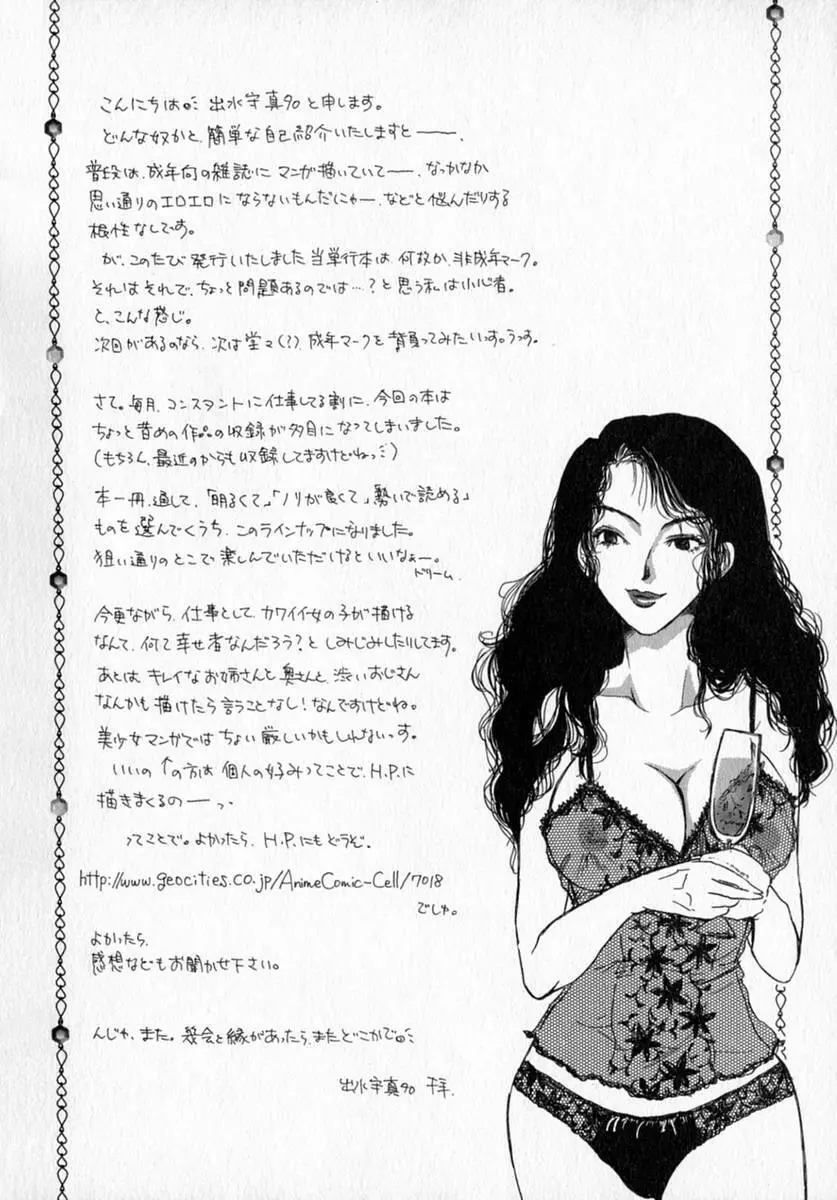 こんにちは。 出水宇真90と申します。
どんな奴かと、簡単な自己紹介いたしますと――、
普段は、成年向の雑誌に マンガ描いていて――、なっかなか
思い通りのエロエロに ならないもんだにゃ――、などと悩んだりする
根性なしです。
が、このたび 発行いたしました 当単行本は 何故か、非成年マーク。
それはそれで、ちょっと問題あるのでは…?と思う私は小心者。
と、こんな感じ。
次回があるのなら、次は堂々(?)、成年マークを背負ってみたいっす。うっす。
さて。毎月、コンスタントに仕事してる割に、今回の本は
ちょっと昔めの作品の収録が多目になってしまいました。
(もちろん、最近のからも収録してますけどねっ)
本一冊、通して、「明るくて」「ノリが良くて」「勢いで読める」
ものを選んでくうち、このラインナップになりました。
狙い通りのとこで楽しんでいただけるといいなぁー。
ドリーム。
今更ながら、仕事として、カワイイ女の子が描ける
なんて、何て幸せ者なんだろう?と しみじみしたりしてます。
あとは キレイなお姉さんと奥さんと、渋いおじさん
なんかも描けたら言うことなし!なんですけどね。
美少女マンガではちょい厳しいかもしれないっす。
いいの ↑の方は 個人の好みってことで、H.P.に
描きまくるの――っ、
ってことで。よかったら、H.P.にもどうぞ。
http://www.geocities.co.jp/AnimeComic-Cell/7018
でしゅ。
よかったら、
感想などもお聞かせ下さい。
んじゃ、また。機会と縁があったら、またどこかで。
出水宇真90 千年.